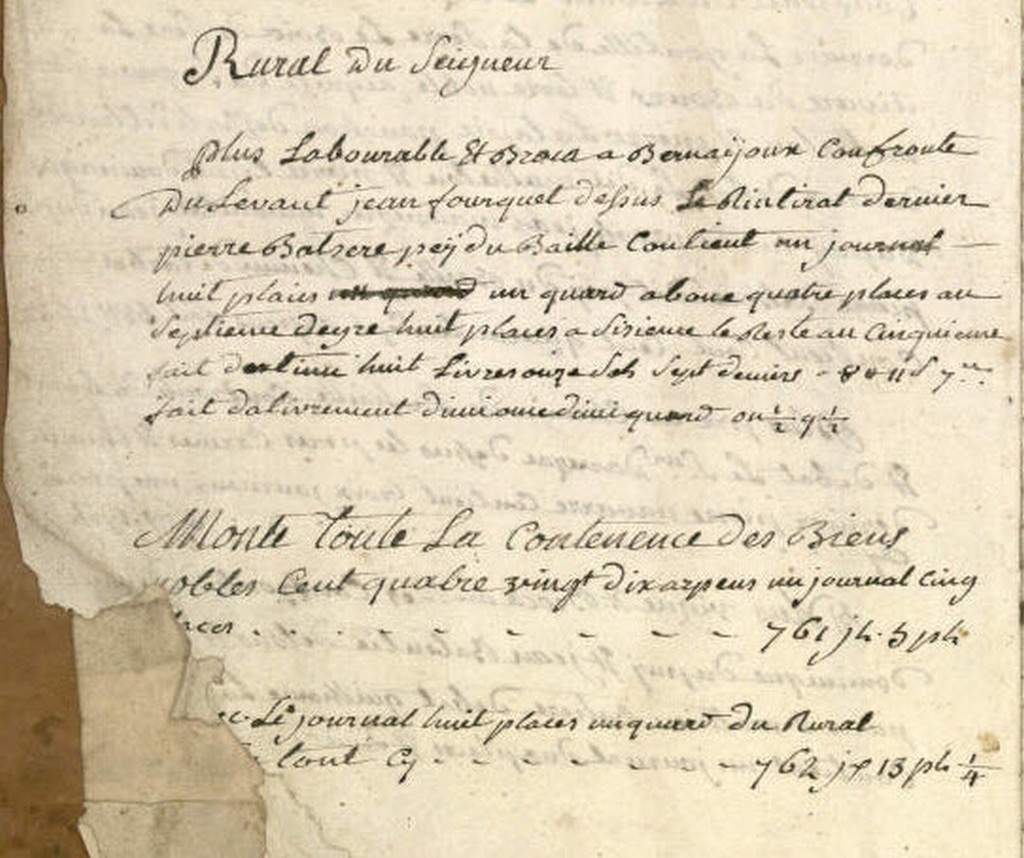 Rural Du Seigneur
plus Labourable Et Broca a Bernaÿoux Confronte
Du Levant jean fourquet dessus Le Rintirat dernier
pierre Batsere peÿ du Baille Contient un journal
huit places un quard abone quatre places au
Septieme degre huit places a Sisieme le Reste au Cinquieme
fait destime huit Livres onze Sols Sept deniers - 8 ll 11 s 7 d
fait dalivrement dimi once dimi quard on 1/2 q 1/2
Monte toute La Contenence des Biens
nobles Cent quatre vingt dix arpens un journal Cinq
places - - - - - - - - 761 jl. 5 pls
Le journal huit places un quard du Rural
tout Cy - - - - - - 762 jx 13 pls 1/4